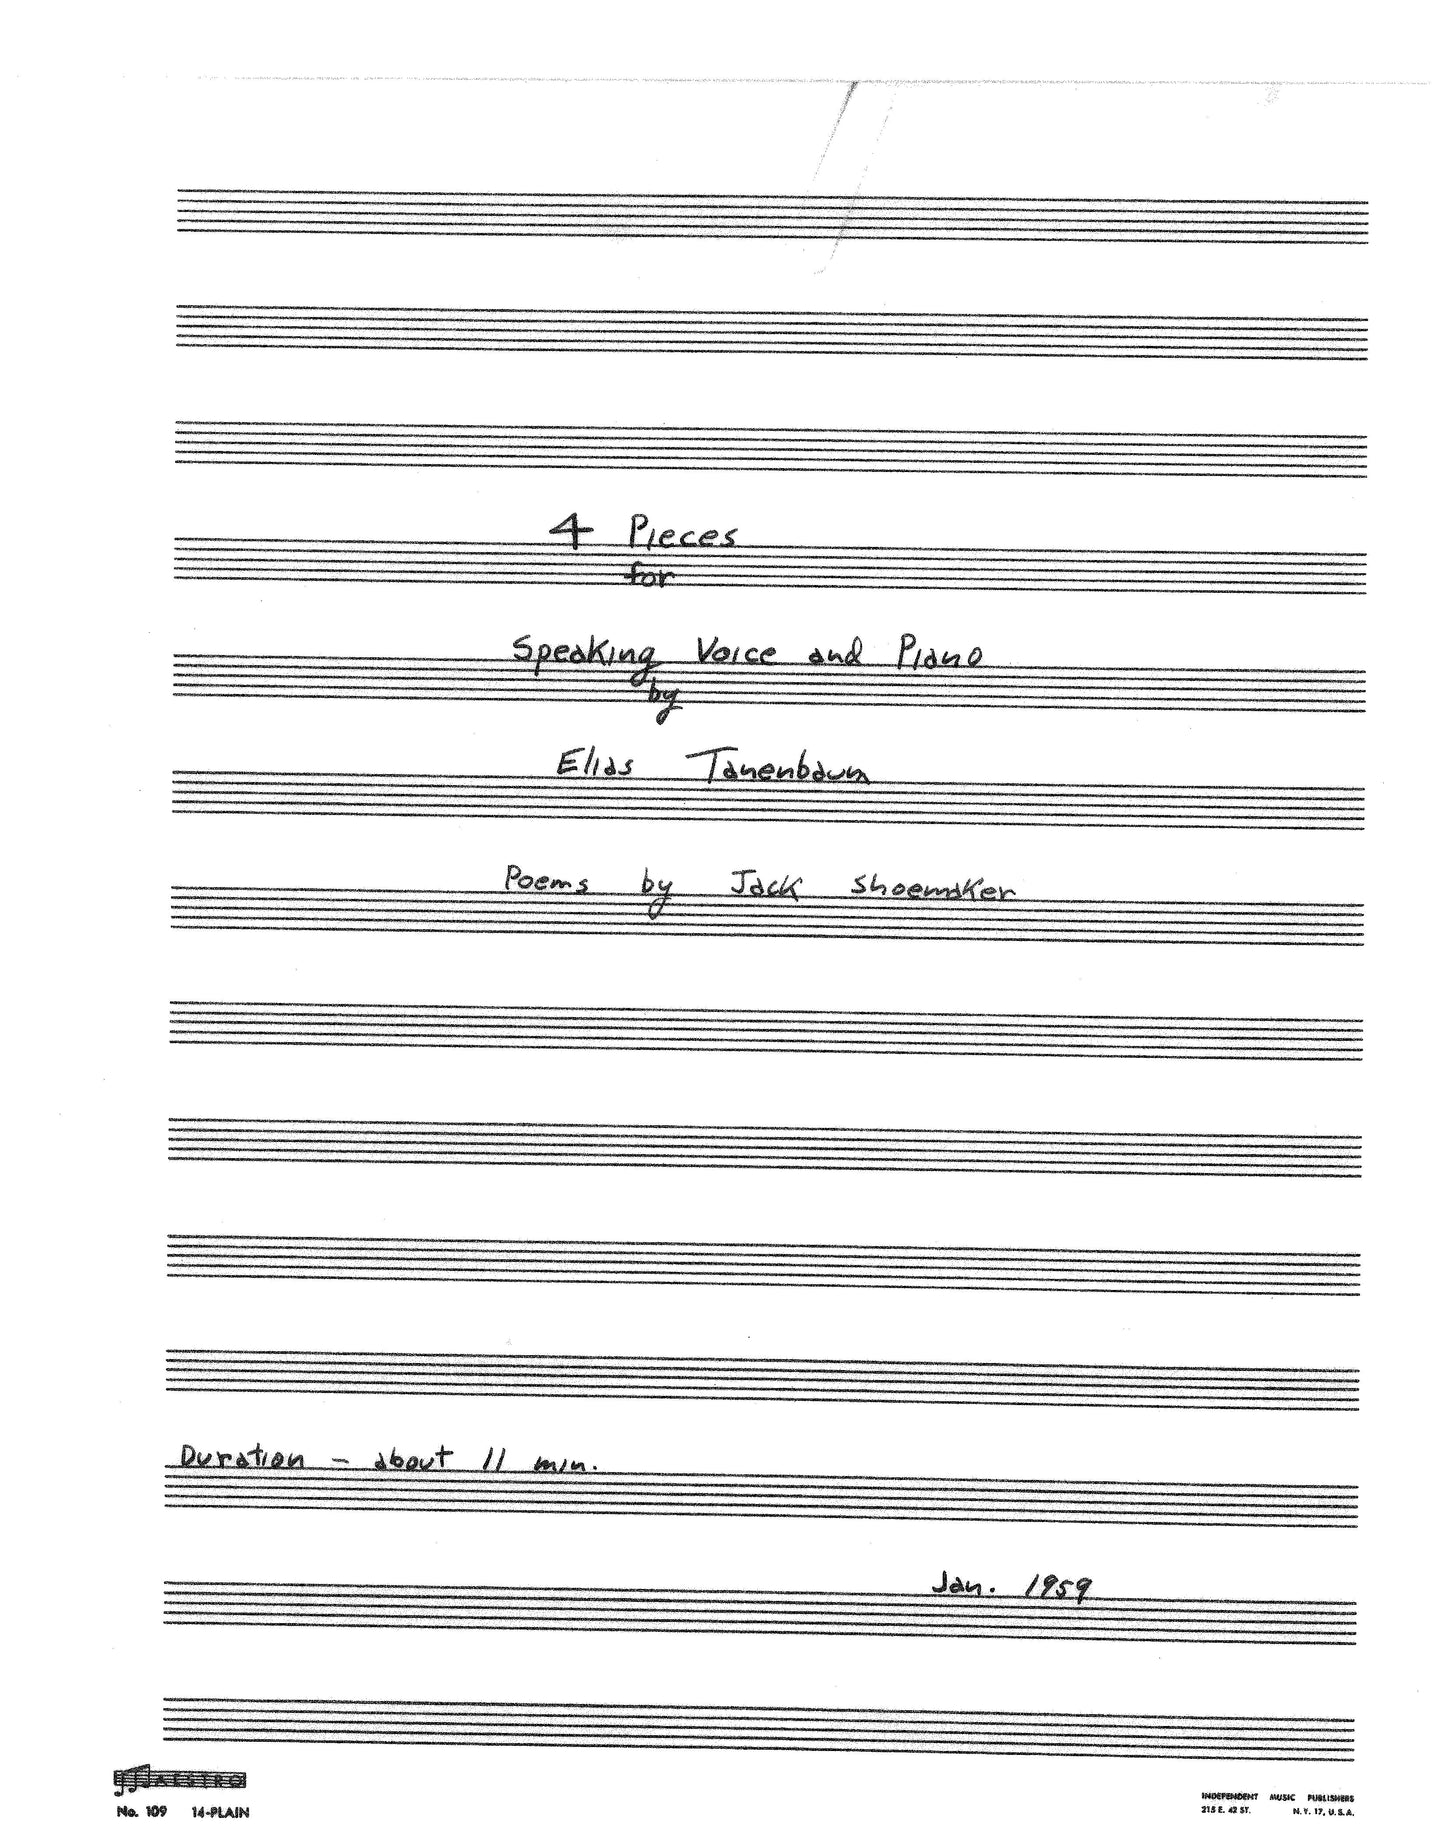 4 Pieces
for
Speaking Voice and Piano
by
Elias Tanenbaum
Poems by Jack Shoemaker
Duration - about 11 min.
Jan. 1959
MAESTRO
No. 109 14-PLAIN
INDEPENDENT MUSIC PUBLISHERS
215 E. 42 ST. N. Y. 17, U. S. A.